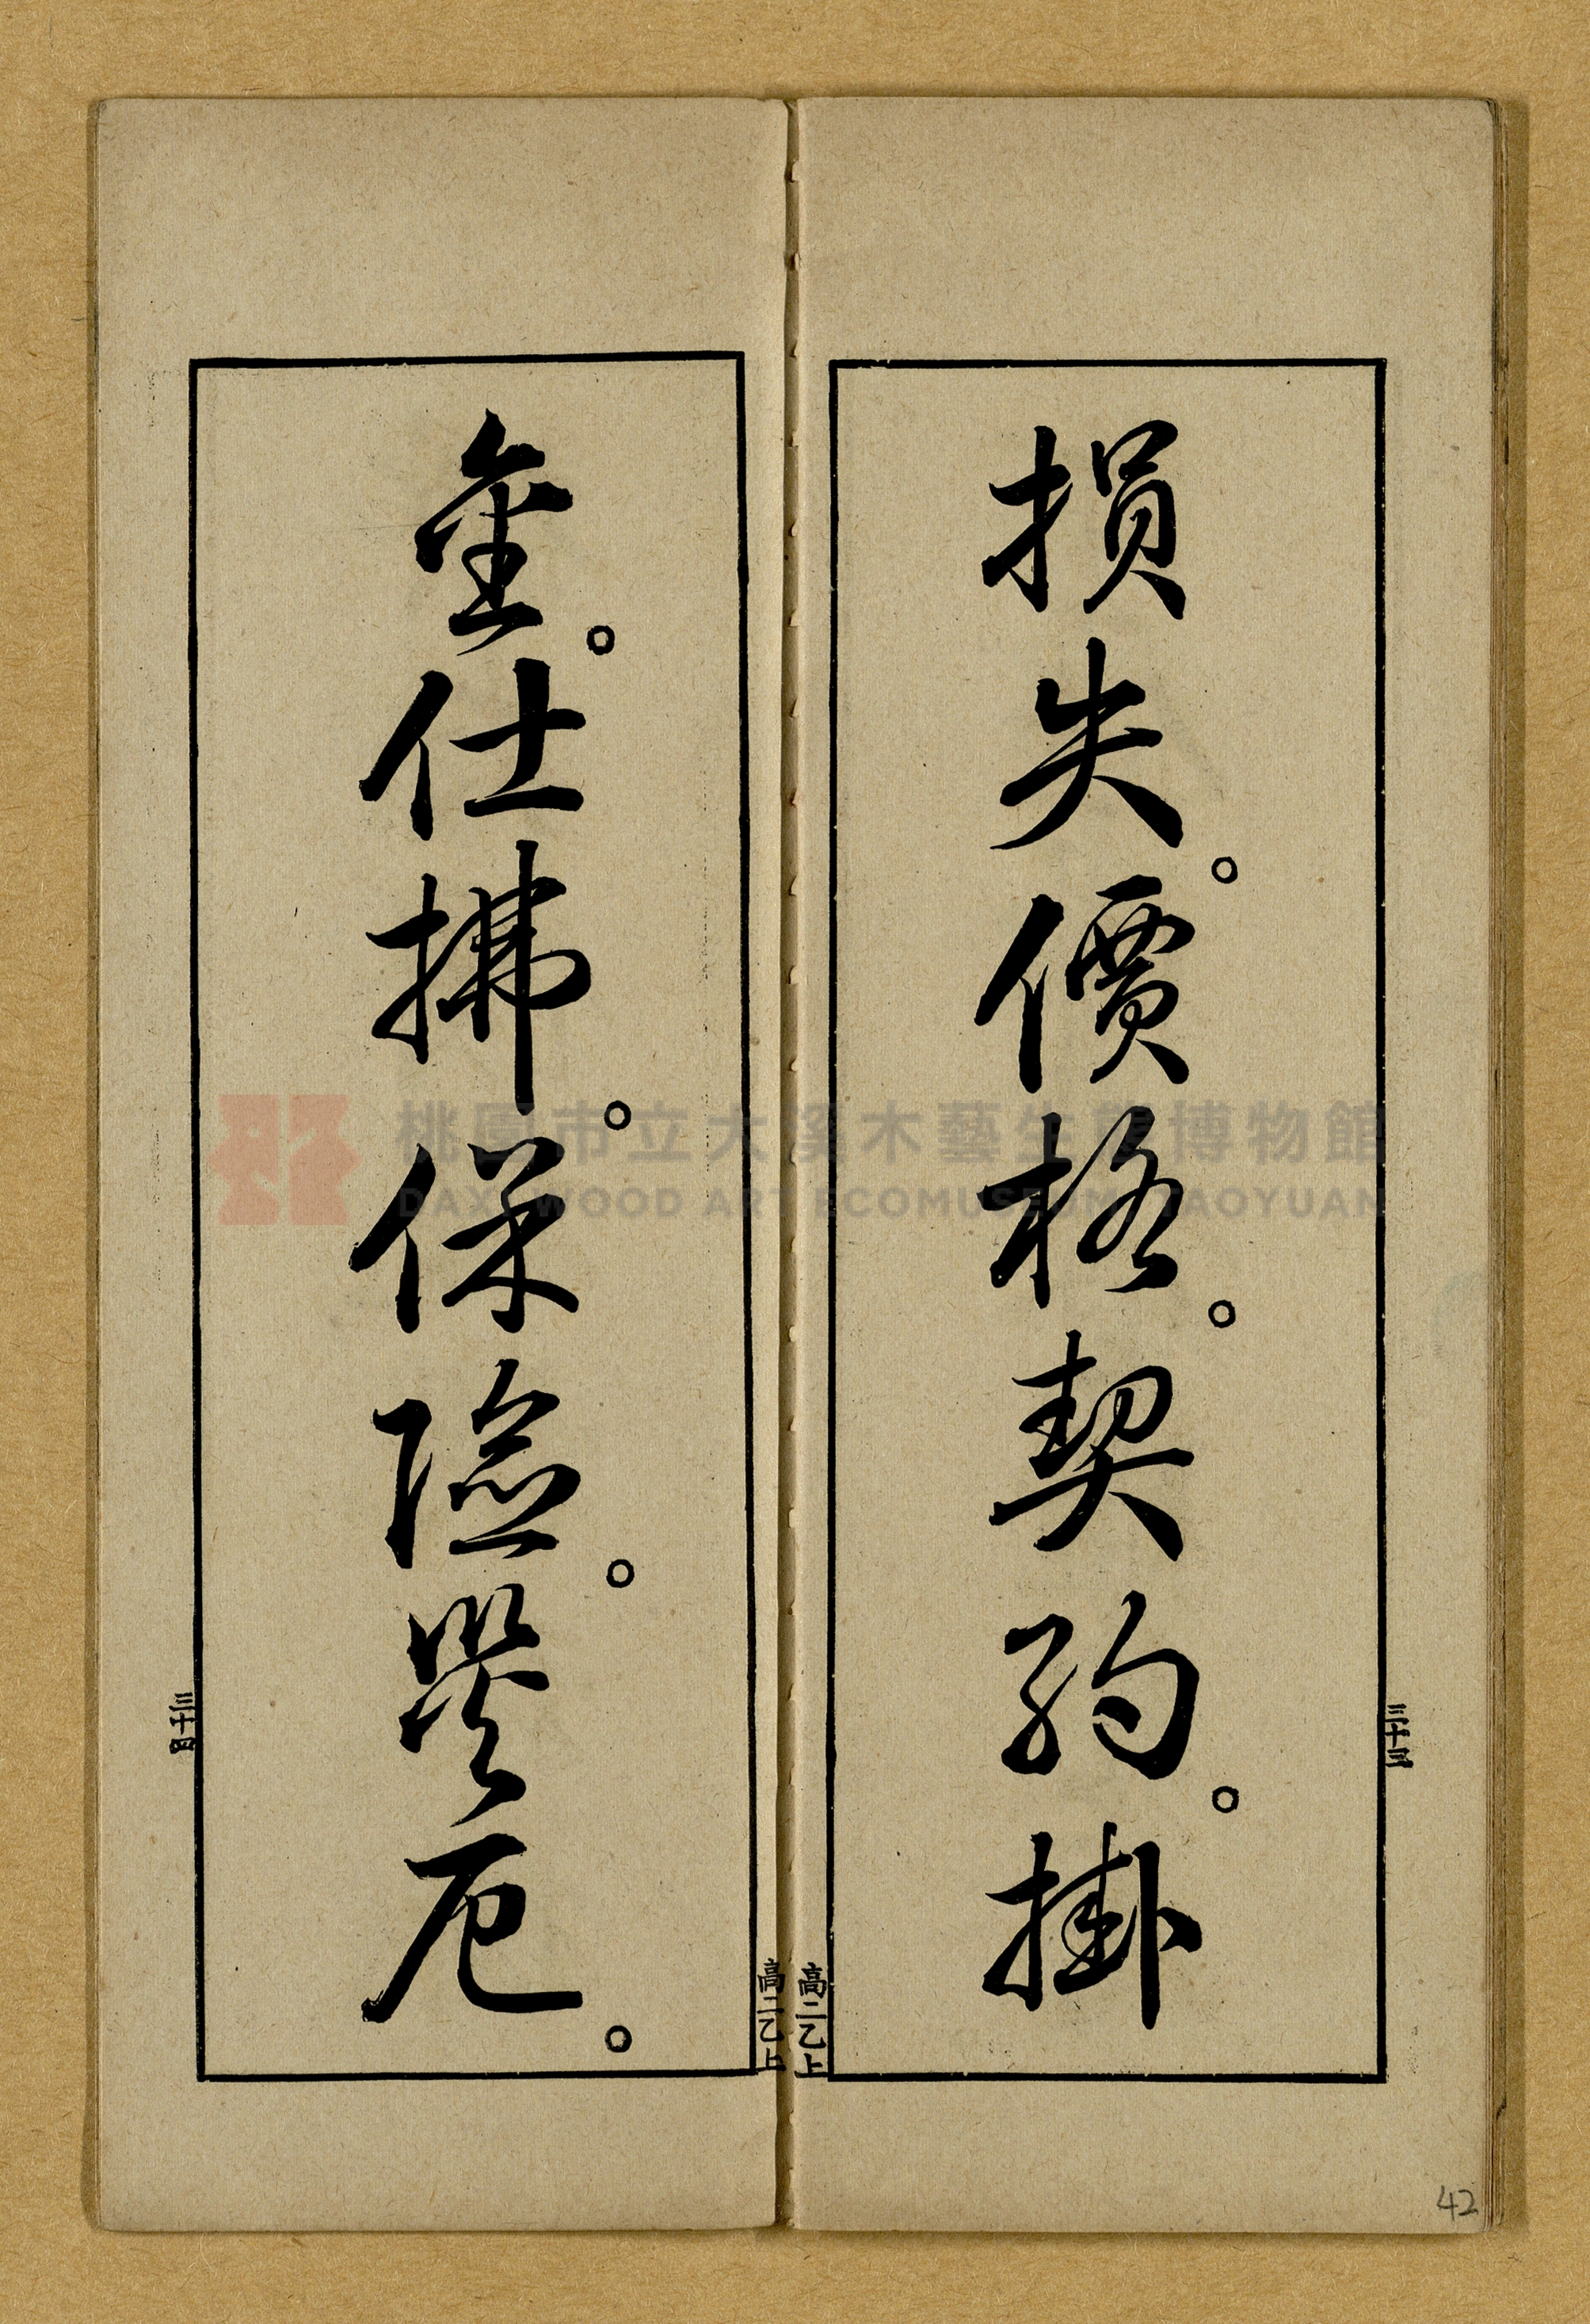 損失。價格。契約。掛
三十三
高二乙上
金。仕拂。保險。災厄。
三十四
高二乙上
桃園市立大溪木藝生態博物館
DAXI WOOD ART ECOMUSEUM, TAOYUAN
42